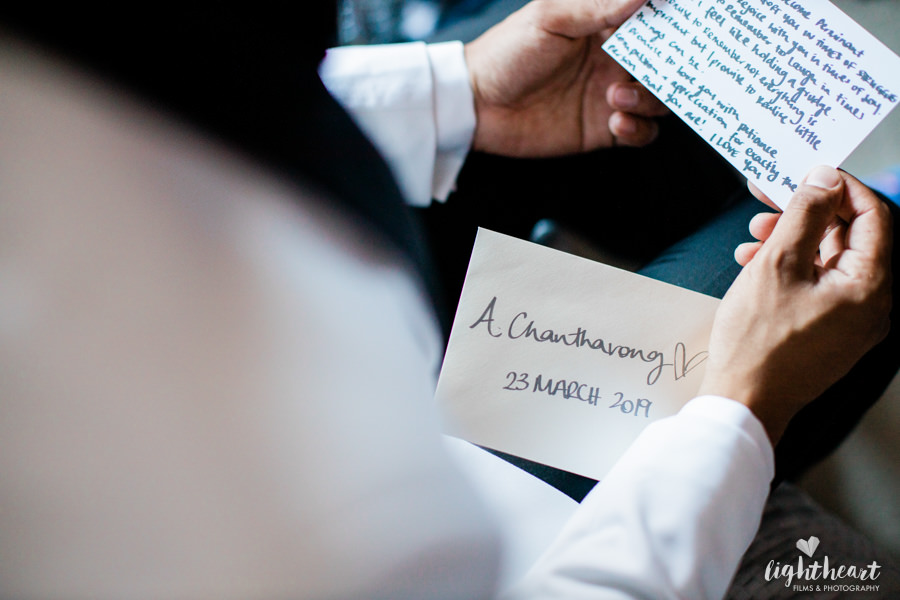 become permanent
you in TIMES OF STRUGGLE
rejoice with you in times of joy
to remember to laugh in times
feel like holding a grudge.
to remember not everything is
important but I promise to realise little
things can be.
promise to love you with patience
compassion & appreciation for exactly the
person that you are. I LOVE YOU
A. Chanthavong
23 MARCH 2019
lightheart
FILMS & PHOTOGRAPHY